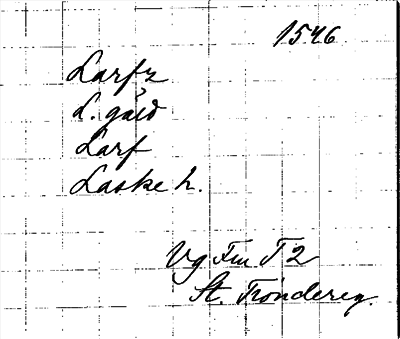 1546
Larfz
L. gård
Larf
Laske h.
Vg Fm T 2
St. Tröndereg.